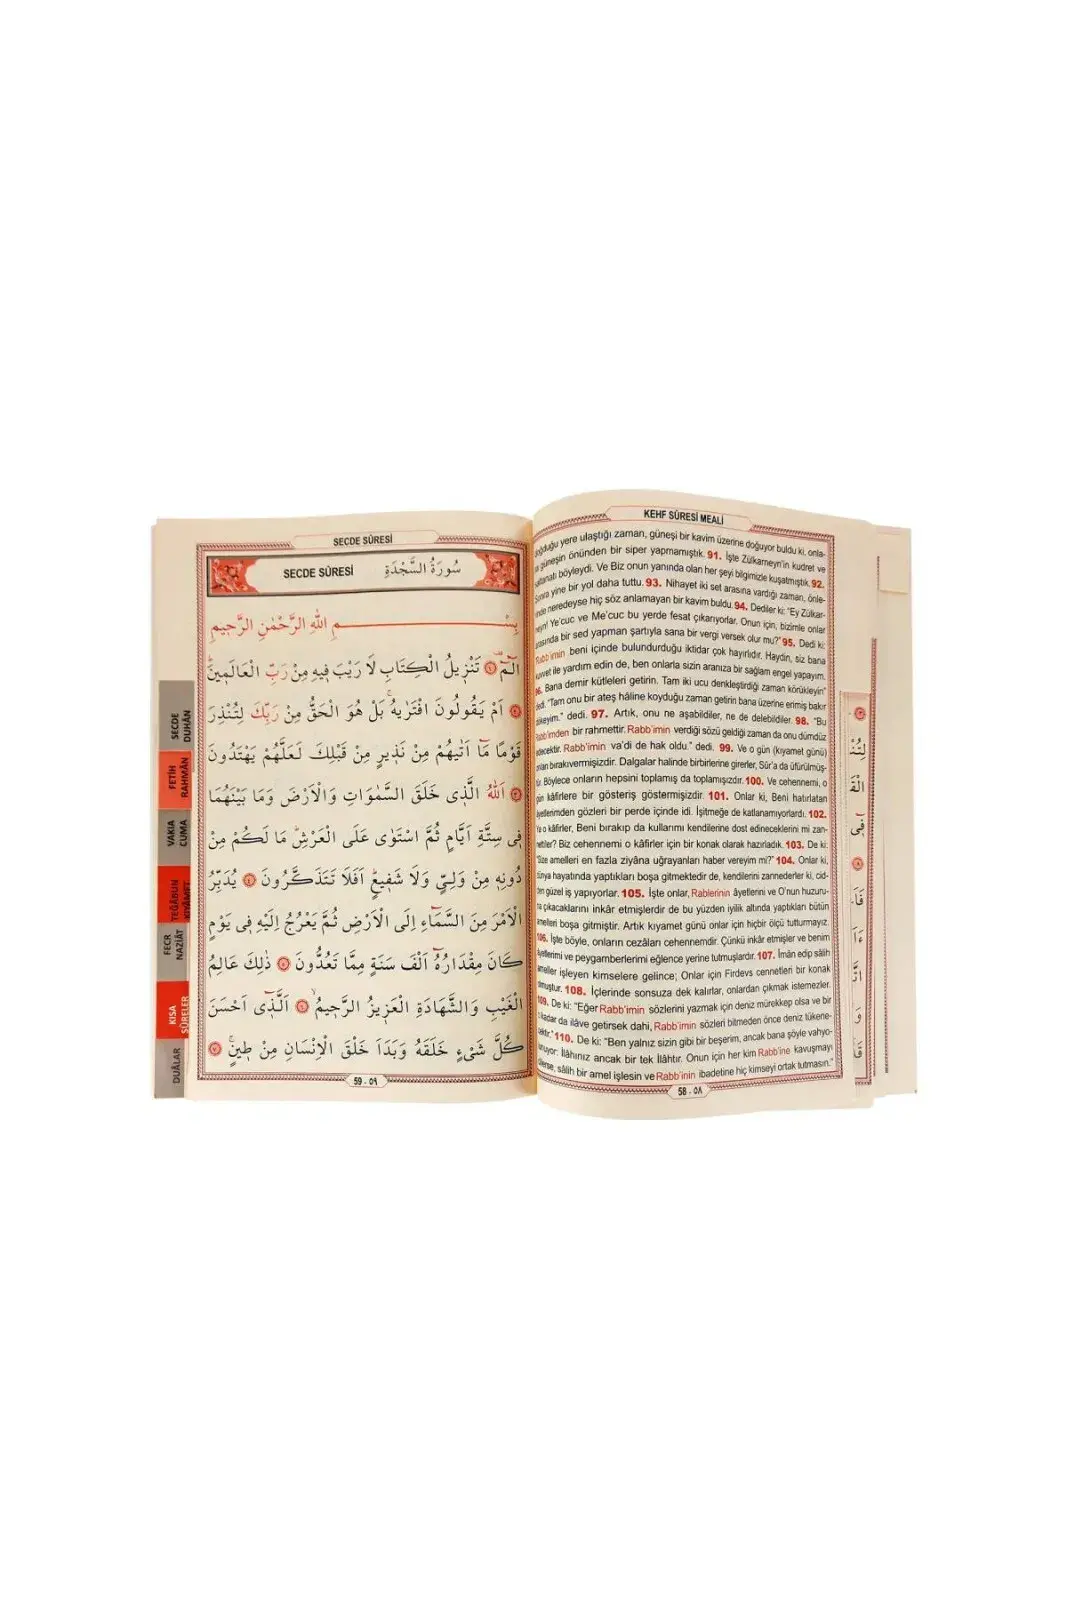 SECDE SÛRESİ
SECDE SÛRESİ سُورَةُ السَّجْدَةِ
بِسْمِ اللّٰهِ الرَّحْمٰنِ الرَّحٖيمِ
الٓمٓ ۚ ﴿١﴾ تَنْزٖيلُ الْكِتَابِ لَا رَيْبَ فٖيهِ مِنْ رَبِّ الْعَالَمٖينَ ؕ
﴿٢﴾ اَمْ يَقُولُونَ افْتَرٰيهُ ۚ بَلْ هُوَ الْحَقُّ مِنْ رَبِّكَ لِتُنْذِرَ
قَوْمًا مَٓا اَتٰيهُمْ مِنْ نَذٖيرٍ مِنْ قَبْلِكَ لَعَلَّهُمْ يَهْتَدُونَ
﴿٣﴾ اَللّٰهُ الَّذٖى خَلَقَ السَّمٰوَاتِ وَالْاَرْضَ وَمَا بَيْنَهُمَا
فٖى سِتَّةِ اَيَّامٍ ثُمَّ اسْتَوٰى عَلَى الْعَرْشِ ؕ مَا لَكُمْ مِنْ
دُونِهٖ مِنْ وَلِىٍّ وَلَا شَفٖيعٍ ؕ اَفَلَا تَتَذَكَّرُونَ ﴿٤﴾ يُدَبِّرُ
الْاَمْرَ مِنَ السَّمَٓاءِ اِلَى الْاَرْضِ ثُمَّ يَعْرُجُ اِلَيْهِ فٖى يَوْمٍ
كَانَ مِقْدَارُهُٓ اَلْفَ سَنَةٍ مِمَّا تَعُدُّونَ ﴿٥﴾ ذٰلِكَ عَالِمُ
الْغَيْبِ وَالشَّهَادَةِ الْعَزٖيزُ الرَّحٖيمُ ۙ ﴿٦﴾ اَلَّذٖٓى اَحْسَنَ
كُلَّ شَىْءٍ خَلَقَهُ وَبَدَاَ خَلْقَ الْاِنْسَانِ مِنْ طٖينٍ ۚ ﴿٧﴾
59 - ٥٩
SECDE
DUHÂN
FETİH
RAHMÂN
VAKIA
CUMA
TEĞÂBÜN
KIYÂMET
FECR
NAZİÂT
KISA
SÛRELER
DUÂLAR
KEHF SÛRESİ MEALİ
doğduğu yere ulaştığı zaman, güneşi bir kavim üzerine doğuyor buldu ki, onla-
güneşin önünden bir siper yapmamıştık. 91. İşte Zülkarneyn'in kudret ve
böyleydi. Ve Biz onun yanında olan her şeyi bilgimizle kuşatmıştık. 92.
Sonra yine bir yol daha tuttu. 93. Nihayet iki set arasına vardığı zaman, önle-
rinde neredeyse hiç söz anlamayan bir kavim buldu. 94. Dediler ki: "Ey Zülkar-
neyn! Ye'cuc ve Me'cuc bu yerde fesat çıkarıyorlar. Onun için, bizimle onlar
arasında bir sed yapman şartıyla sana bir vergi versek olur mu?" 95. Dedi ki:
Rabb'imin beni içinde bulundurduğu iktidar çok hayırlıdır. Haydin, siz bana
kuvvet ile yardım edin de, ben onlarla sizin aranıza bir sağlam engel yapayım.
96. Bana demir kütleleri getirin. Tam iki ucu denkleştirdiği zaman körükleyin"
dedi. "Tam onu bir ateş hâline koyduğu zaman getirin bana üzerine erimiş bakır
dökeyim." dedi. 97. Artık, onu ne aşabildiler, ne de delebildiler. 98. "Bu
Rabb'imden bir rahmettir. Rabb'imin verdiği sözü geldiği zaman da onu dümdüz
edecektir. Rabb'imin va'di de hak oldu." dedi. 99. Ve o gün (kıyamet günü)
onları bırakıvermişizdir. Dalgalar halinde birbirlerine girerler, Sûr'a da üfürülmüş-
tür. Böylece onların hepsini toplamış da toplamışızdır. 100. Ve cehennemi, o
gün kâfirlere bir gösteriş göstermişizdir. 101. Onlar ki, Beni hatırlatan
âyetlerimden gözleri bir perde içinde idi. İşitmeğe de katlanamıyorlardı. 102.
Ya o kâfirler, Beni bırakıp da kullarımı kendilerine dost edineceklerini mi zan-
nettiler? Biz cehennemi o kâfirler için bir konak olarak hazırladık. 103. De ki:
"Size amelleri en fazla ziyâna uğrayanları haber vereyim mi?" 104. Onlar ki,
dünya hayatında yaptıkları boşa gitmektedir de, kendilerini zannederler ki, cid-
den güzel iş yapıyorlar. 105. İşte onlar, Rablerinin âyetlerini ve O'nun huzuru-
na çıkacaklarını inkâr etmişlerdir de bu yüzden iyilik altında yaptıkları bütün
amelleri boşa gitmiştir. Artık kıyamet günü onlar için hiçbir ölçü tutturmayız.
106. İşte böyle, onların cezâları cehennemdir. Çünkü inkâr etmişler ve benim
âyetlerimi ve peygamberlerimi eğlence yerine tutmuşlardır. 107. İmân edip sâlih
ameller işleyen kimselere gelince; Onlar için Firdevs cennetleri bir konak
olmuştur. 108. İçlerinde sonsuza dek kalırlar, onlardan çıkmak istemezler.
109. De ki: "Eğer Rabb'imin sözlerini yazmak için deniz mürekkep olsa ve bir
kadar da ilâve getirsek dahi, Rabb'imin sözleri bitmeden önce deniz tükene-
cektir." 110. De ki: "Ben yalnız sizin gibi bir beşerim, ancak bana şöyle vahyo-
lunuyor: İlâhınız ancak bir tek İlâhtır. Onun için her kim Rabb'ine kavuşmayı
dilerse, sâlih bir amel işlesin ve Rabb'inin ibadetine hiç kimseyi ortak tutmasın."
58 - ٥٨